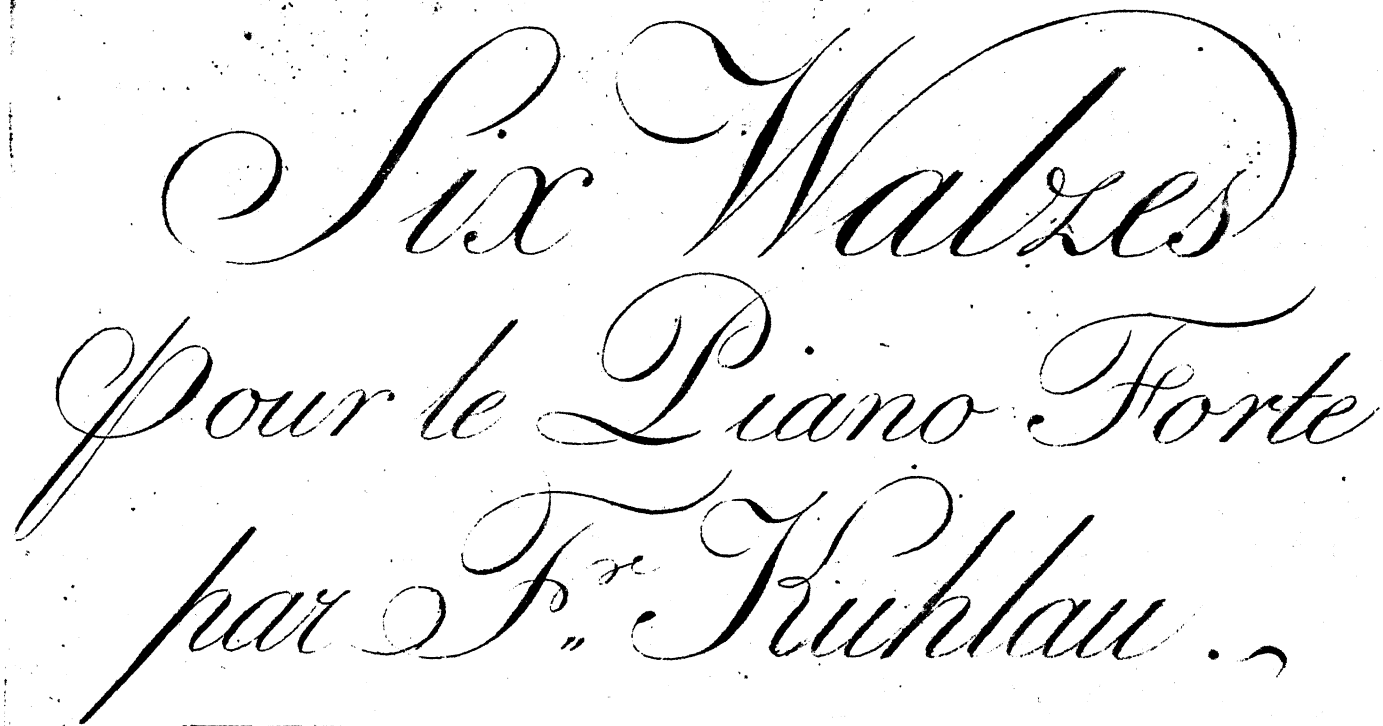 Six Walzes
pour le Piano Forte
par Fr. Kuhlau.